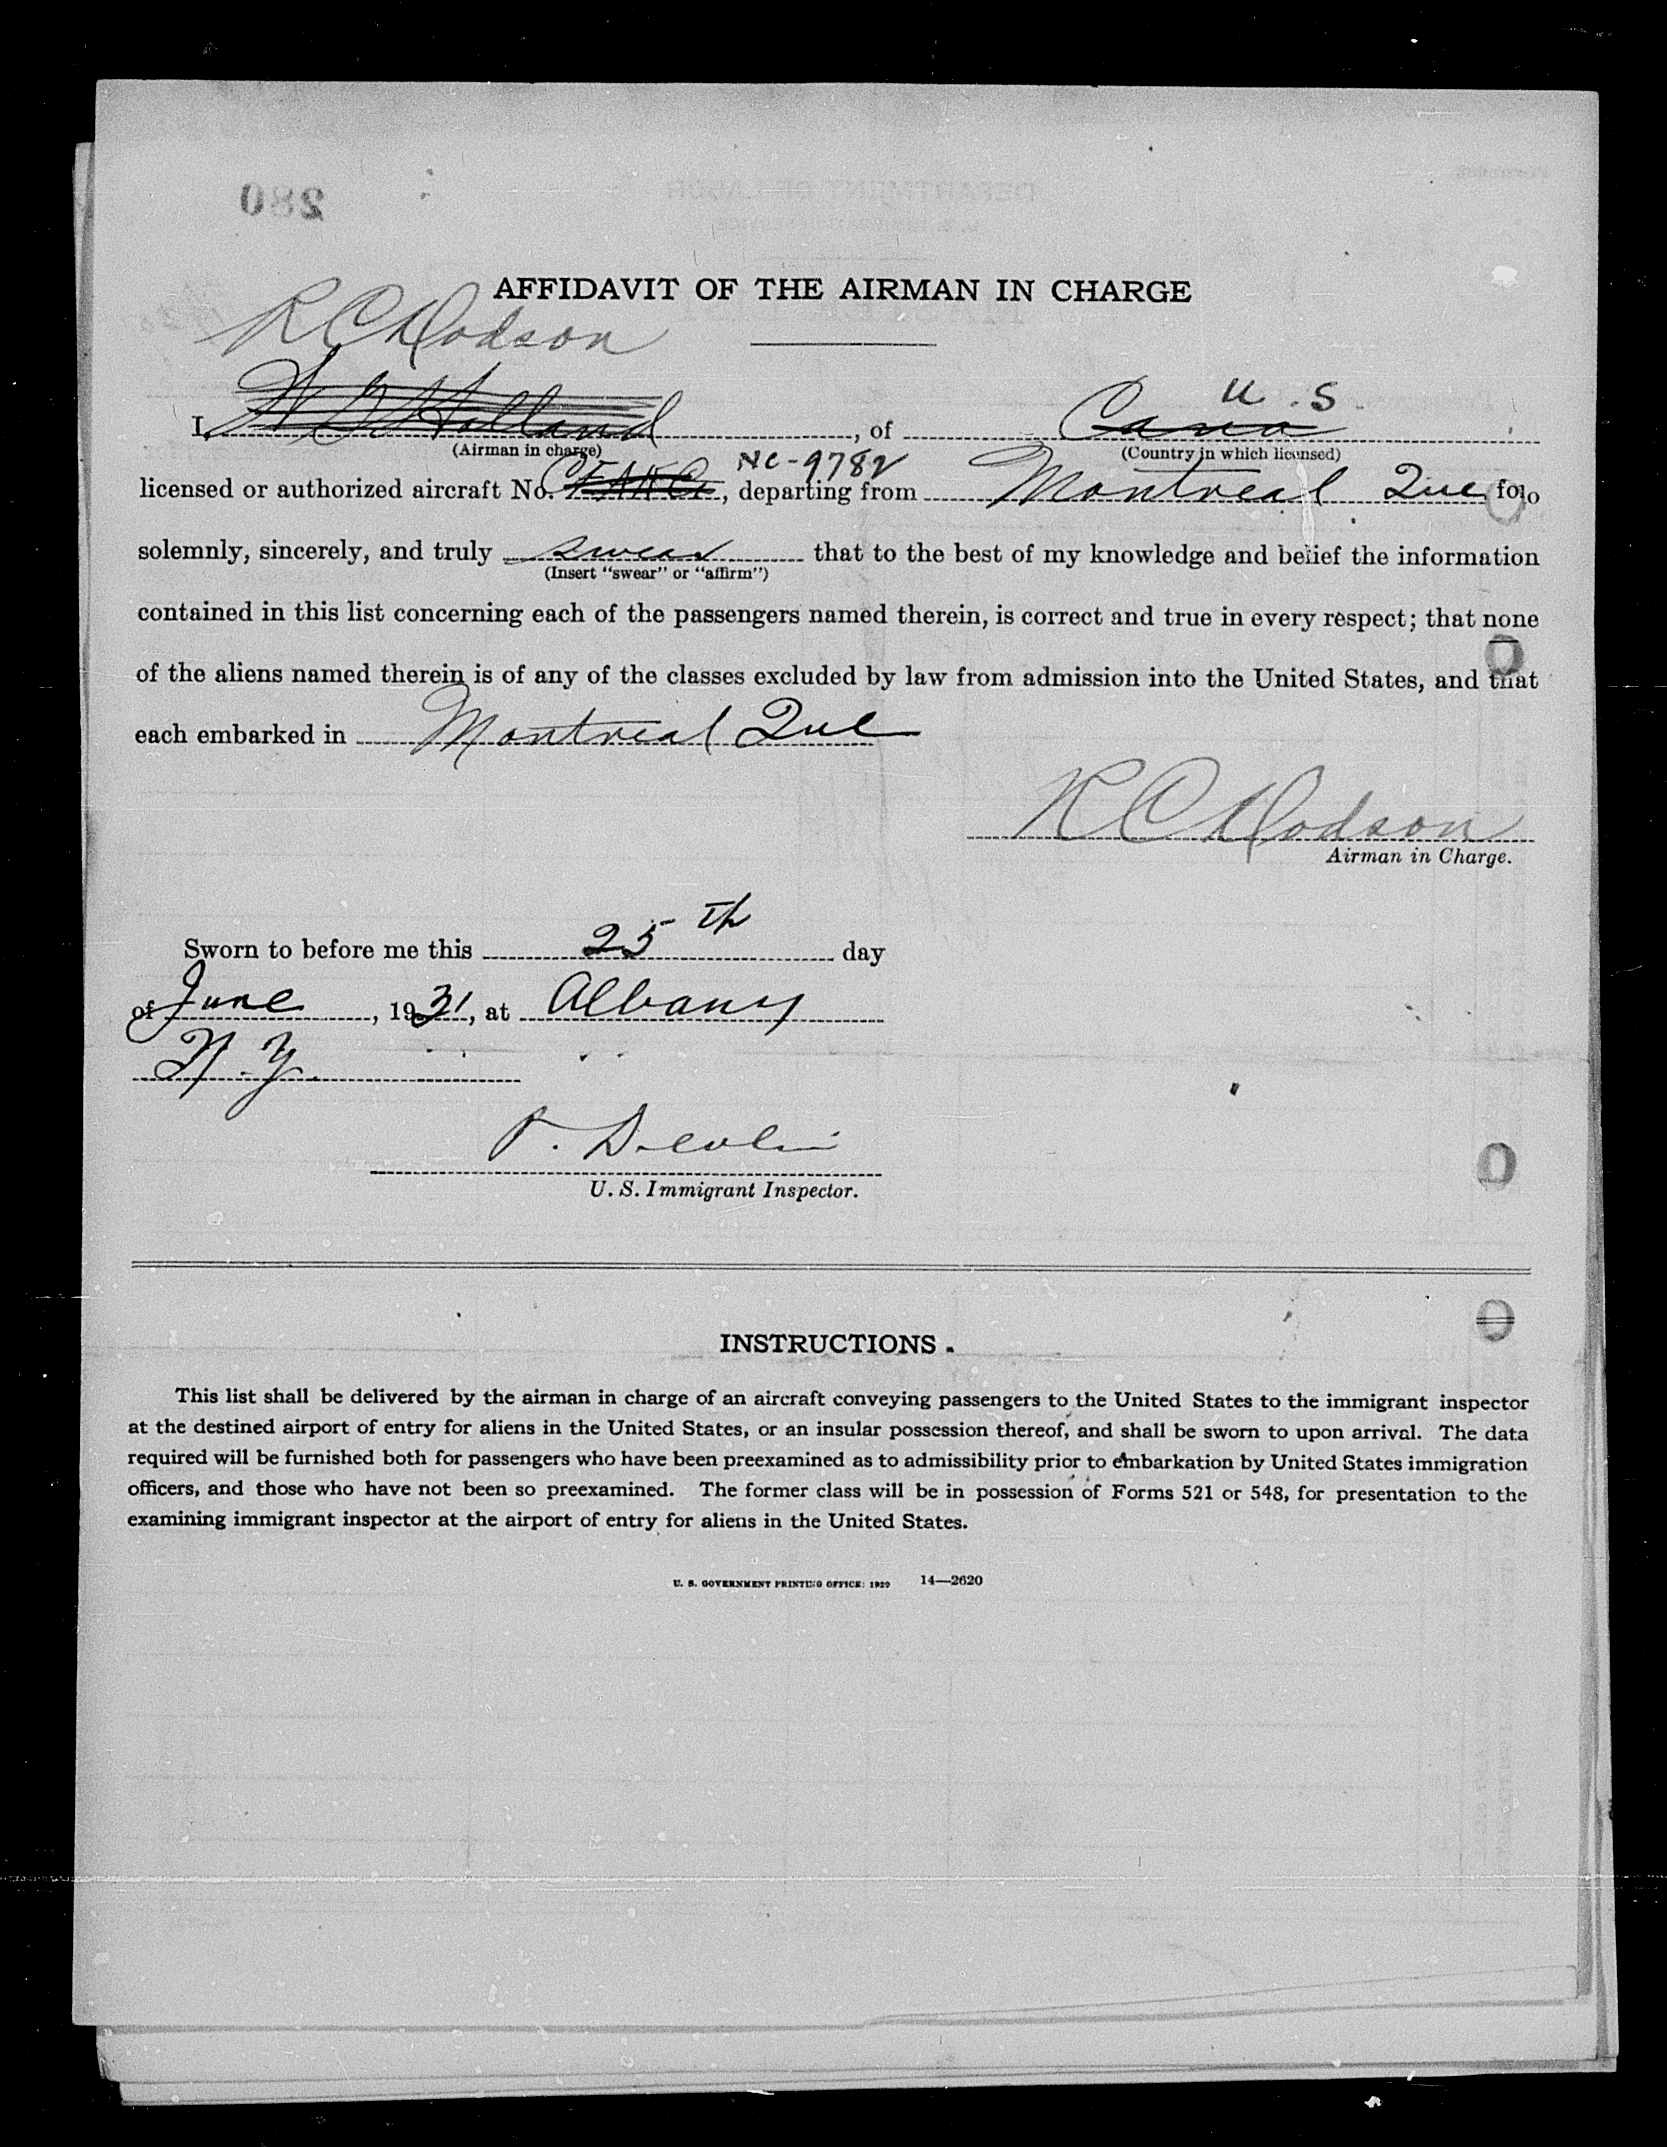 280
AFFIDAVIT OF THE AIRMAN IN CHARGE
R C Hodson
U. S.
I, W G Holland, of Cana
(Airman in charge) (Country in which licensed)
NC-9782
licensed or authorized aircraft No. , departing from Montreal Que, do
solemnly, sincerely, and truly swear that to the best of my knowledge and belief the information
(Insert "swear" or "affirm")
contained in this list concerning each of the passengers named therein, is correct and true in every respect; that none
of the aliens named therein is of any of the classes excluded by law from admission into the United States, and that
each embarked in Montreal Que
R C Hodson
Airman in Charge.
Sworn to before me this 25th day
of June, 1931, at Albany
N.Y.
P. Devlin
U. S. Immigrant Inspector.
INSTRUCTIONS.
This list shall be delivered by the airman in charge of an aircraft conveying passengers to the United States to the immigrant inspector
at the destined airport of entry for aliens in the United States, or an insular possession thereof, and shall be sworn to upon arrival. The data
required will be furnished both for passengers who have been preexamined as to admissibility prior to embarkation by United States immigration
officers, and those who have not been so preexamined. The former class will be in possession of Forms 521 or 548, for presentation to the
examining immigrant inspector at the airport of entry for aliens in the United States.
U. S. GOVERNMENT PRINTING OFFICE: 1929 14—2620